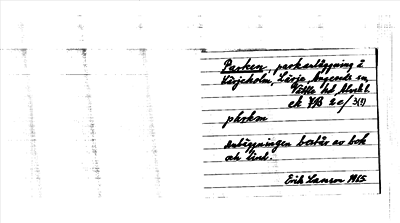 Parken, parkanläggning i
Kärjeholm, Lärje, Angereds sn,
Vättle hd, Älvsb. l.
ek 7B 2e/3(1)
phrkm
Anläggningen består av bok
och lind.
Erik Larsson 1965